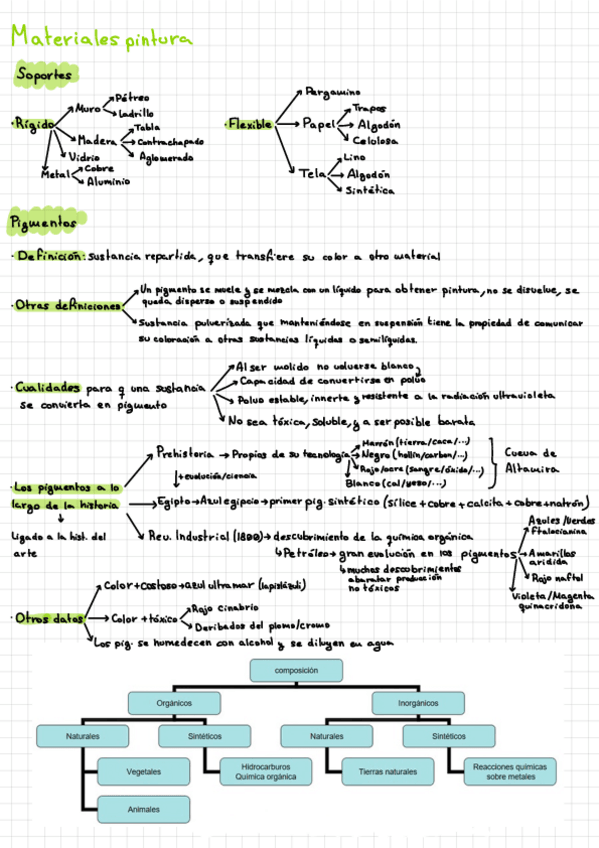 Materiales pintura
Soportes
· Rígido
Muro
Pétreo
Ladrillo
Madera
Tabla
Contrachapado
Aglomerado
Vidrio
Metal
Cobre
Aluminio
· Flexible
Pergamino
Papel
Trapos
Algodón
Celolosa
Tela
Lino
Algodón
Sintética
Pigmentos
· Definición: sustancia repartida, que transfiere su color a otro material
· Otras definiciones
Un pigmento se muele y se mezcla con un líquido para obtener pintura, no se disuelve, se
queda disperso o suspendido
Sustancia pulverizada que manteniéndose en suspensión tiene la propiedad de comunicar
su coloración a otras sustancias líquidas o semilíquidas.
· Cualidades para q una sustancia
se convierta en pigmento
Al ser molido no volverse blanco,
Capacidad de convertirse en polvo
Polvo estable, innerte y resistente a la radiación ultravioleta
No sea tóxica, soluble, y a ser posible barata
· Los pigmentos a lo
largo de la historia
↓
Ligado a la hist. del
arte
Prehistoria → Propios de su tecnología
Marrón (tierra/caca/...)
Negro (hollín/carbon/...)
Rojo/ocre (sangre/óxido/...)
Blanco (cal/yeso/...)
Cueva de
Altamira
↓ + evolución/ciencia
Egipto → Azul egipcio → primer pig. sintético (sílice + cobre + calcita + cobre + natrón)
Rev. Industrial (1800) → descubrimiento de la química orgánica
↳ Petróleo → gran evolución en los pigmentos
↳ muchos descubrimientos
abaratar producción
no tóxicos
Azules/Verdes
ftalocianina
Amarillos
aridida
Rojo naftol
Violeta/Magenta
quinacridona
· Otros datos
Color + costoso → azul ultramar (lapislázuli)
Color + tóxico
Rojo cinabrio
Deribados del plomo/cromo
Los pig. se humedecen con alcohol y se diluyen en agua
composición
Orgánicos
Inorgánicos
Naturales
Sintéticos
Naturales
Sintéticos
Vegetales
Hidrocarburos
Quimica orgánica
Tierras naturales
Reacciones quimicas
sobre metales
Animales